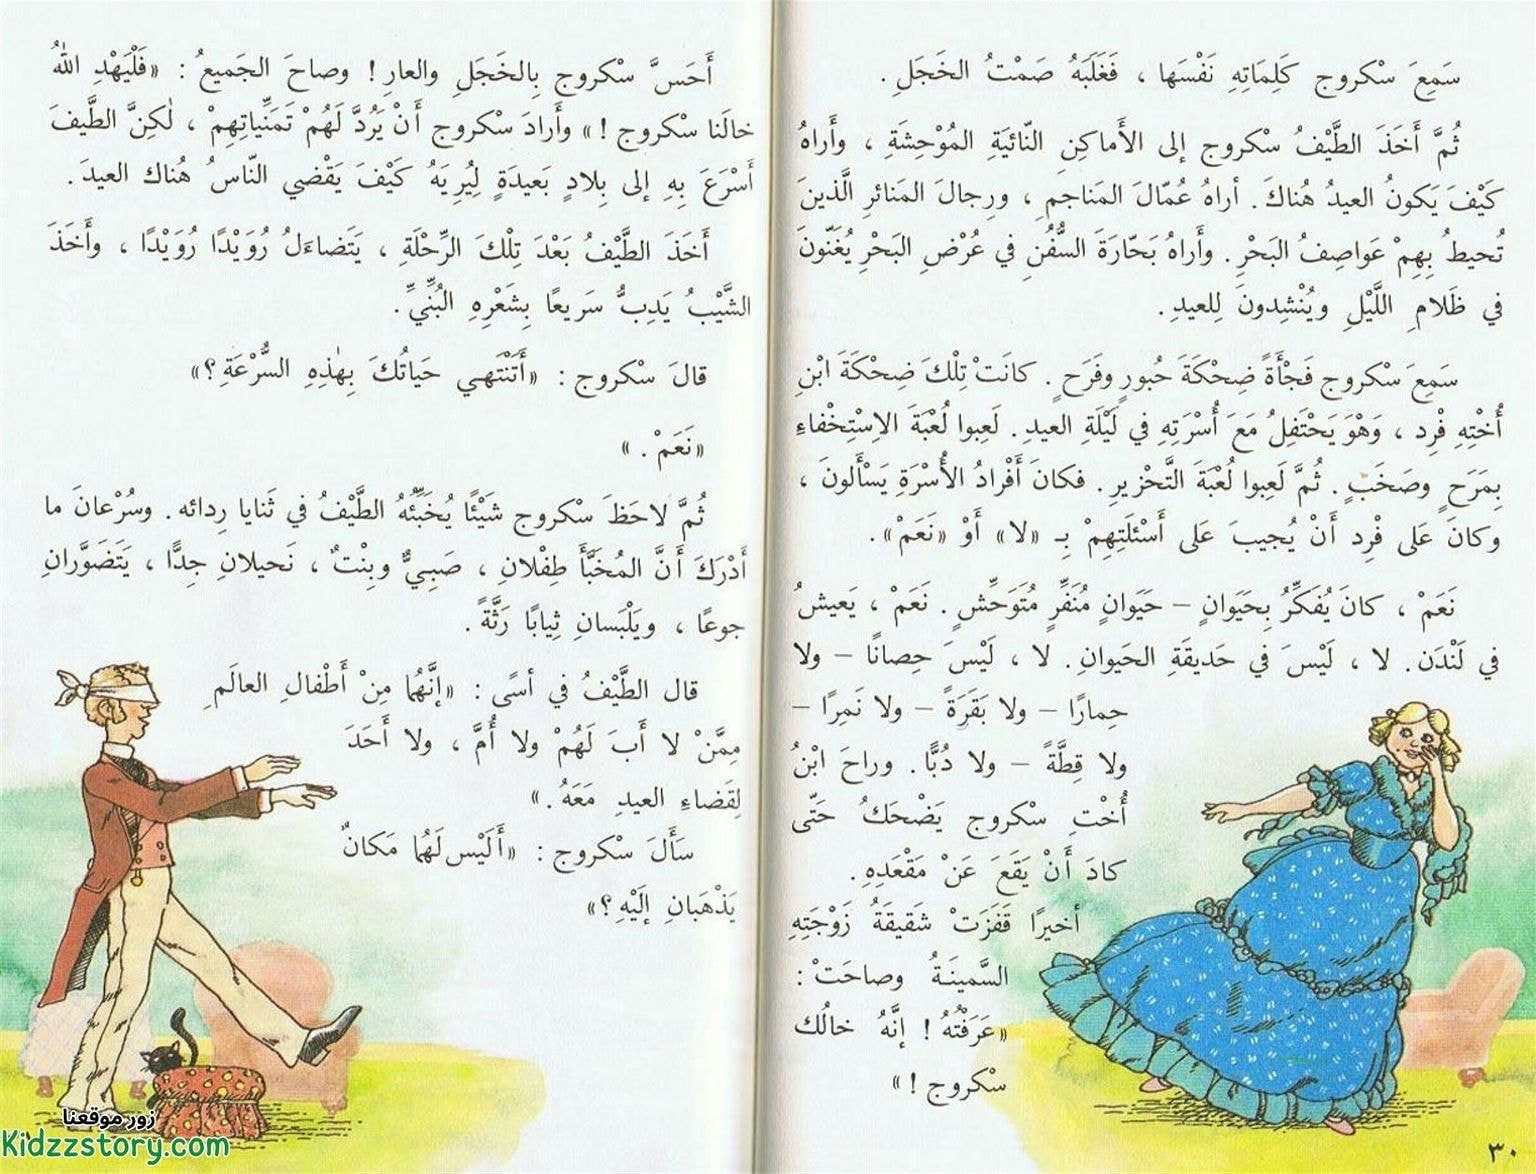 سَمِعَ سْكروج كَلِمَاتِهِ نَفْسَها ، فَغَلَبَهُ صَمْتُ الخَجَلِ .
ثُمَّ أَخَذَ الطَّيْفُ سْكروج إلى الأَماكِنِ النّائيَةِ المُوْحِشَةِ ، وأَراهُ
كَيْفَ يَكونُ العيدُ هُناكَ . أراهُ عُمّالَ المَناجِمِ ، ورِجالَ المَنائرِ الَّذينَ
تُحيطُ بِهِمْ عَواصِفُ البَحْرِ . وأَراهُ بَحّارَةَ السُّفُنِ في عُرْضِ البَحْرِ يُغَنّونَ
في ظَلامِ اللَّيْلِ ويُنْشِدونَ لِلعيدِ .
سَمِعَ سْكروج فَجْأَةً ضِحْكَةَ حُبورٍ وفَرَحٍ . كانَتْ تِلْكَ ضِحْكَةَ ابْنِ
أُخْتِهِ فْرِد ، وَهْوَ يَحْتَفِلُ مَعَ أُسْرَتِهِ في لَيْلَةِ العيدِ . لَعِبوا لُعْبَةَ الاِسْتِخْفاءِ
بِمَرَحٍ وصَخَبٍ . ثُمَّ لَعِبوا لُعْبَةَ التَّحْزيرِ . فكانَ أَفْرادُ الأُسْرَةِ يَسْأَلونَ ،
وكانَ عَلى فْرِد أَنْ يُجيبَ عَلى أَسْئلَتِهِمْ بِـ «لا» أَوْ «نَعَمْ» .
نَعَمْ ، كانَ يُفَكِّرُ بِحَيَوانٍ – حَيَوانٍ مُنَفِّرٍ مُتَوَحِّشٍ . نَعَمْ ، يَعيشُ
في لَنْدَن . لا ، لَيْسَ في حَديقَةِ الحَيوانِ . لا ، لَيْسَ حِصانًا – ولا
حِمارًا – ولا بَقَرَةً – ولا نَمِرًا –
ولا قِطَّةً – ولا دُبًّا . وراحَ ابْنُ
أُخْتِ سْكروج يَضْحَكُ حَتّى
كادَ أَنْ يَقَعَ عَنْ مَقْعَدِهِ .
أخيرًا قَفَزَتْ شَقيقَةُ زَوْجَتِهِ
السَّمينَةُ وصاحَتْ :
«عَرَفْتُهُ ! إنَّهُ خالُك
سْكروج ! »
٣٠
أَحَسَّ سْكروج بِالخَجَلِ والعارِ ! وصاحَ الجَميعُ : «فَلْيَهْدِ اللهُ
خالَنا سْكروج ! » وأَرادَ سْكروج أَنْ يَرُدَّ لَهُمْ تَمَنِّياتِهِمْ ، لٰكِنَّ الطَّيفَ
أَسْرَعَ بِهِ إلى بِلادٍ بَعيدَةٍ لِيُرِيَهُ كَيْفَ يَقْضي النّاسُ هُناك العيدَ .
أَخَذَ الطَّيْفُ بَعْدَ تِلْكَ الرِّحْلَةِ ، يَتَضاءَلُ رُوَيْدًا رُوَيْدًا ، وأَخَذَ
الشَّيْبُ يَدِبُّ سَريعًا بِشَعْرِهِ البُنِّيِّ .
قالَ سْكروج : «أَتَنْتَهي حَياتُكَ بِهٰذِهِ السُّرْعَةِ ؟»
«نَعَمْ . »
ثُمَّ لاحَظَ سْكروج شَيْئًا يُخَبِّئُهُ الطَّيْفُ في ثَنايا رِدائه . وسُرْعانَ ما
أَدْرَكَ أَنَّ المُخَبَّأَ طِفْلانِ ، صَبيٌّ وبِنْتٌ ، نَحيلانِ جِدًّا ، يَتَضَوَّرانِ
جوعًا ، ويَلْبَسانِ ثِيابًا رَثَّةً .
قال الطَّيْفُ في أسًى : «إنَّهُما مِنْ أَطْفالِ العالَمِ
مِمَّنْ لا أَبَ لَهُمْ ولا أُمَّ ، ولا أَحَدَ
لِقَضاءِ العيدِ مَعَهُ . »
سَأَلَ سْكروج : «أَلَيْسَ لَهُما مَكانٌ
يَذْهَبانِ إلَيْهِ ؟»
زور موقعنا
Kidzzstory.com